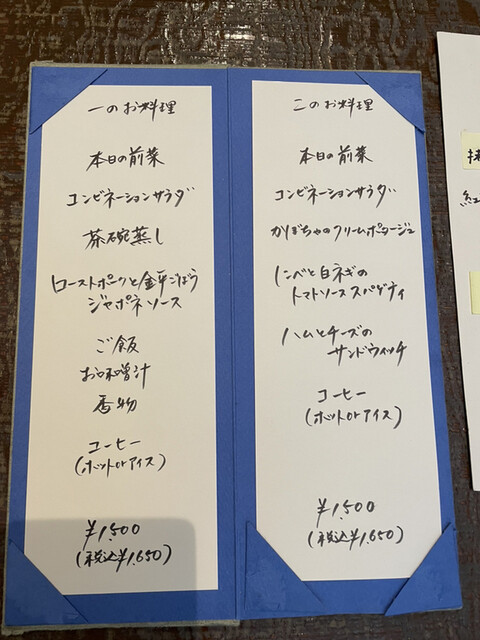 一のお料理
本日の前菜
コンビネーションサラダ
茶碗蒸し
ローストポークと金平ごぼう
ジャポネソース
ご飯
お味噌汁
香物
コーヒー
(ホットorアイス)
¥1,500
(税込¥1,650)
二のお料理
本日の前菜
コンビネーションサラダ
かぼちゃのクリームポタージュ
にべと白ネギの
トマトソーススパゲティ
ハムとチーズの
サンドウィッチ
コーヒー
(ホットorアイス)
¥1,500
(税込¥1,650)
紅